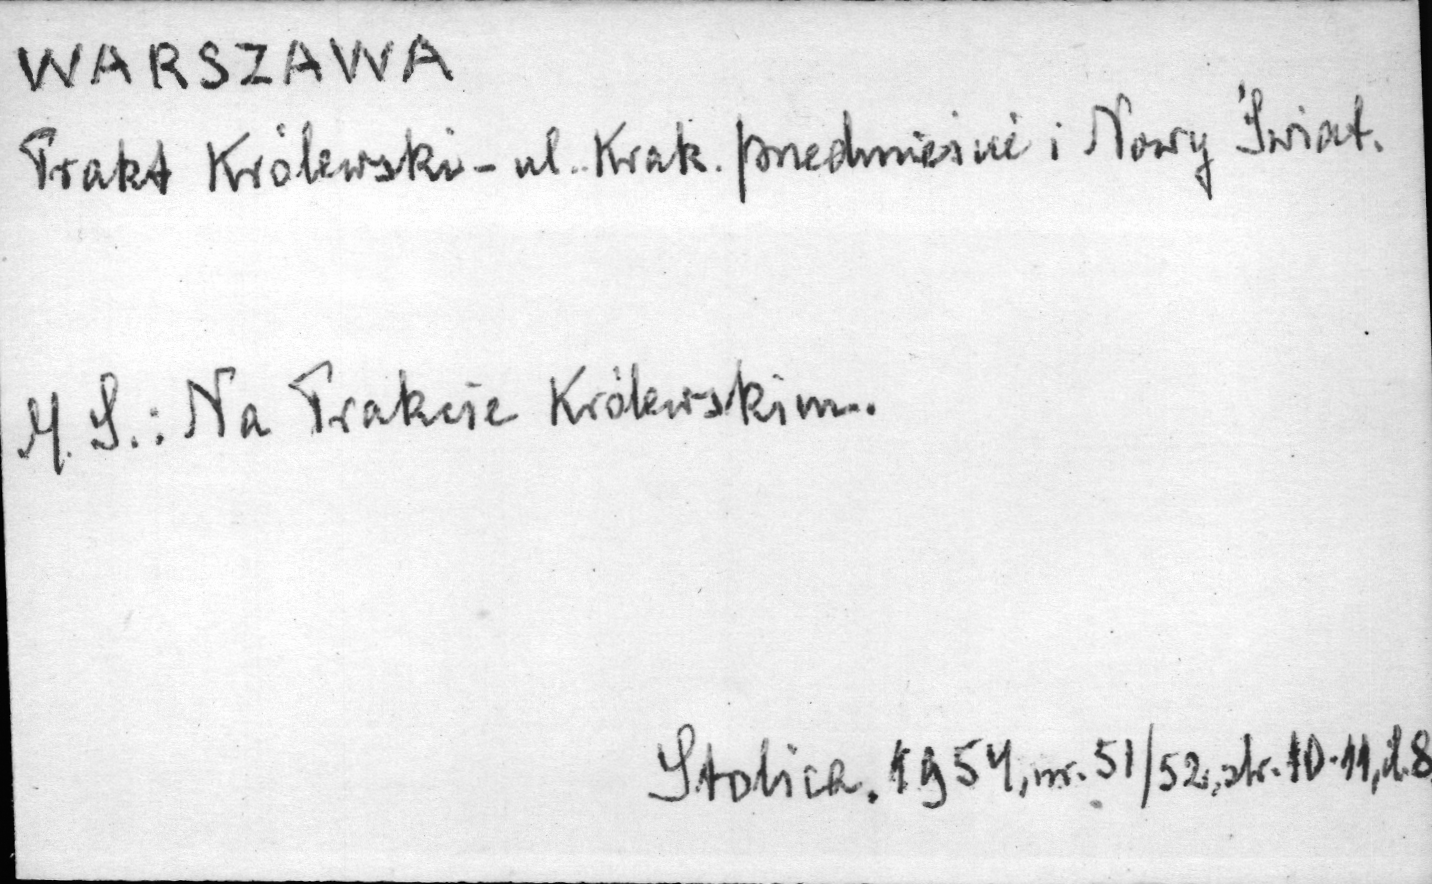 WARSZAWA
Trakt Królewski - ul. Krak. przedmieście i Nowy Świat.
M. S.: Na Trakcie Królewskim.
Stolica. 1954, nr. 51/52, str. 10-11, il. 8